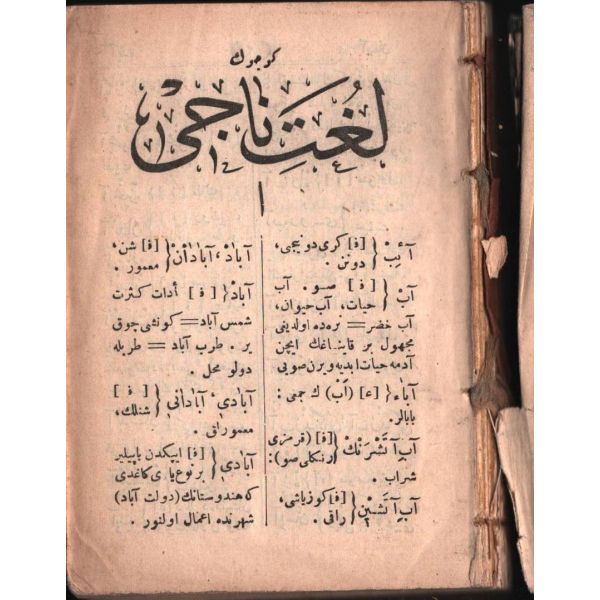 كوچوك
لُغَتِ نَاجِى
ا
آيِبْ { [فا] كرى دونيجى،
دونن .
آبْ { [فا] صو . آب
حيات، آب حيوان،
آب خضر = نره ده اولديغى
مجهول بر قايناغك ايچن
آدمه حيات ابديه ويرن صويى
آباء { [ع] (اَبْ) ك جمى :
بابالر .
آبِ آتَشْرَنْكْ { [فا] (قرمزى
رنكلى صو) :
شراب .
آبِ آتَشِينْ { [فا] كوزياشى،
راقى .
آبَادْ ، آبَادَانْ { [فا] شن،
معمور .
آبَادْ { [فا] أدات كثرت
شمس آباد = كونشى چوق
ير . طرب آباد = طربله
دولو محل .
آبَادِى ، آبَادَانِى { [فا]
شنلك،
معمورلق .
آبَادِى { [فا] ايپكدن ياپيلير
بر نوع يازى كاغدى
كه هندوستانك (دولت آباد)
شهرنده اعمال اولنور .